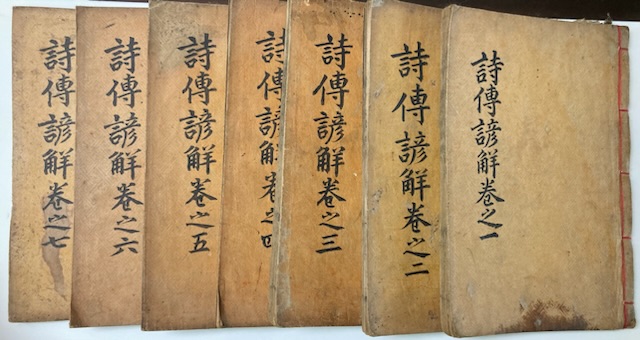 詩傳諺觧卷之一
詩傳諺觧卷之二
詩傳諺觧卷之三
詩傳諺觧卷之四
詩傳諺觧卷之五
詩傳諺觧卷之六
詩傳諺觧卷之七